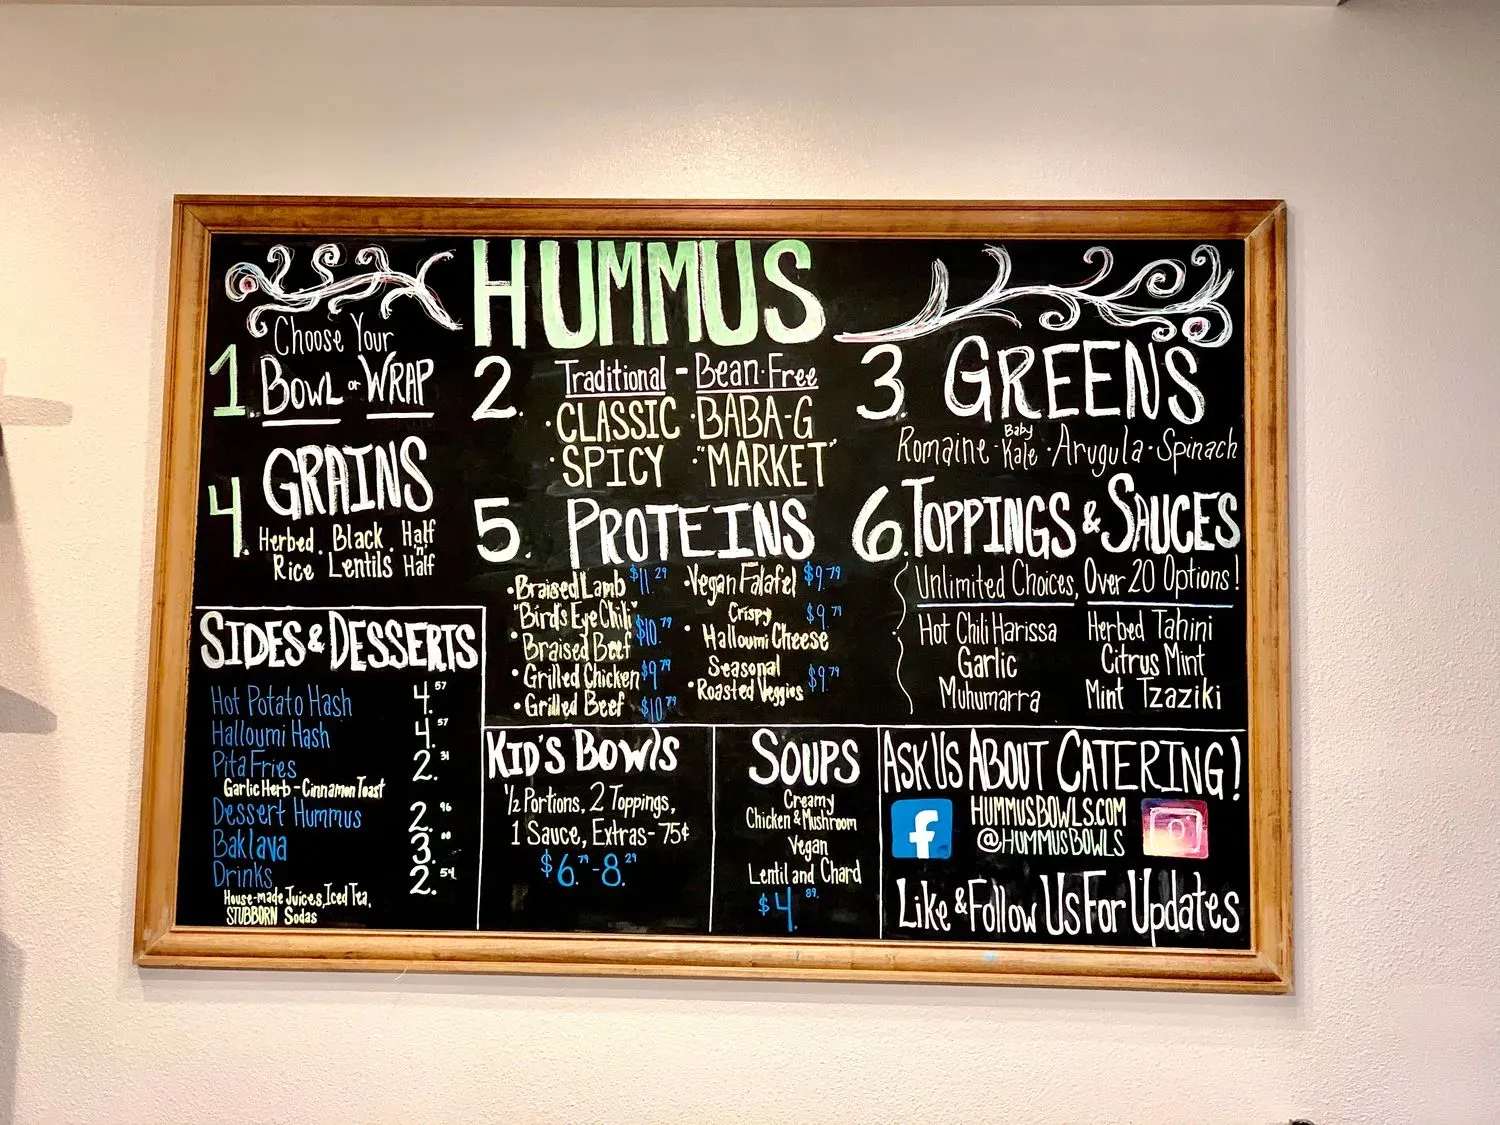 HUMMUS
1 Choose Your
BOWL or WRAP
2. Traditional - Bean-Free
• CLASSIC • BABA-G
• SPICY • "MARKET"
3. GREENS
Romaine - Baby Kale • Arugula • Spinach
4. GRAINS
Herbed Rice • Black Lentils • Half n Half
5. PROTEINS
• Braised Lamb $11.29
• "Bird's Eye Chili" Braised Beef $10.79
• Grilled Chicken $9.79
• Grilled Beef $10.79
• Vegan Falafel $9.79
• Crispy Halloumi Cheese $9.79
• Seasonal Roasted Veggies $9.79
6. TOPPINGS & SAUCES
Unlimited Choices, Over 20 Options!
Hot Chili Harissa
Garlic
Muhumarra
Herbed Tahini
Citrus Mint
Mint Tzaziki
SIDES & DESSERTS
Hot Potato Hash 4.57
Halloumi Hash 4.57
Pita Fries 2.31
Garlic Herb - Cinnamon Toast
Dessert Hummus 2.96
Baklava 3.00
Drinks 2.54
House-made Juices, Iced Tea,
STUBBORN Sodas
KID'S BOWLS
1/2 Portions, 2 Toppings,
1 Sauce, Extras - 75¢
$6.79 - 8.29
SOUPS
Creamy
Chicken & Mushroom
Vegan
Lentil and Chard
$4.89
ASK US ABOUT CATERING!
f
HUMMUSBOWLS.COM
@HUMMUSBOWLS
Like & Follow Us For Updates